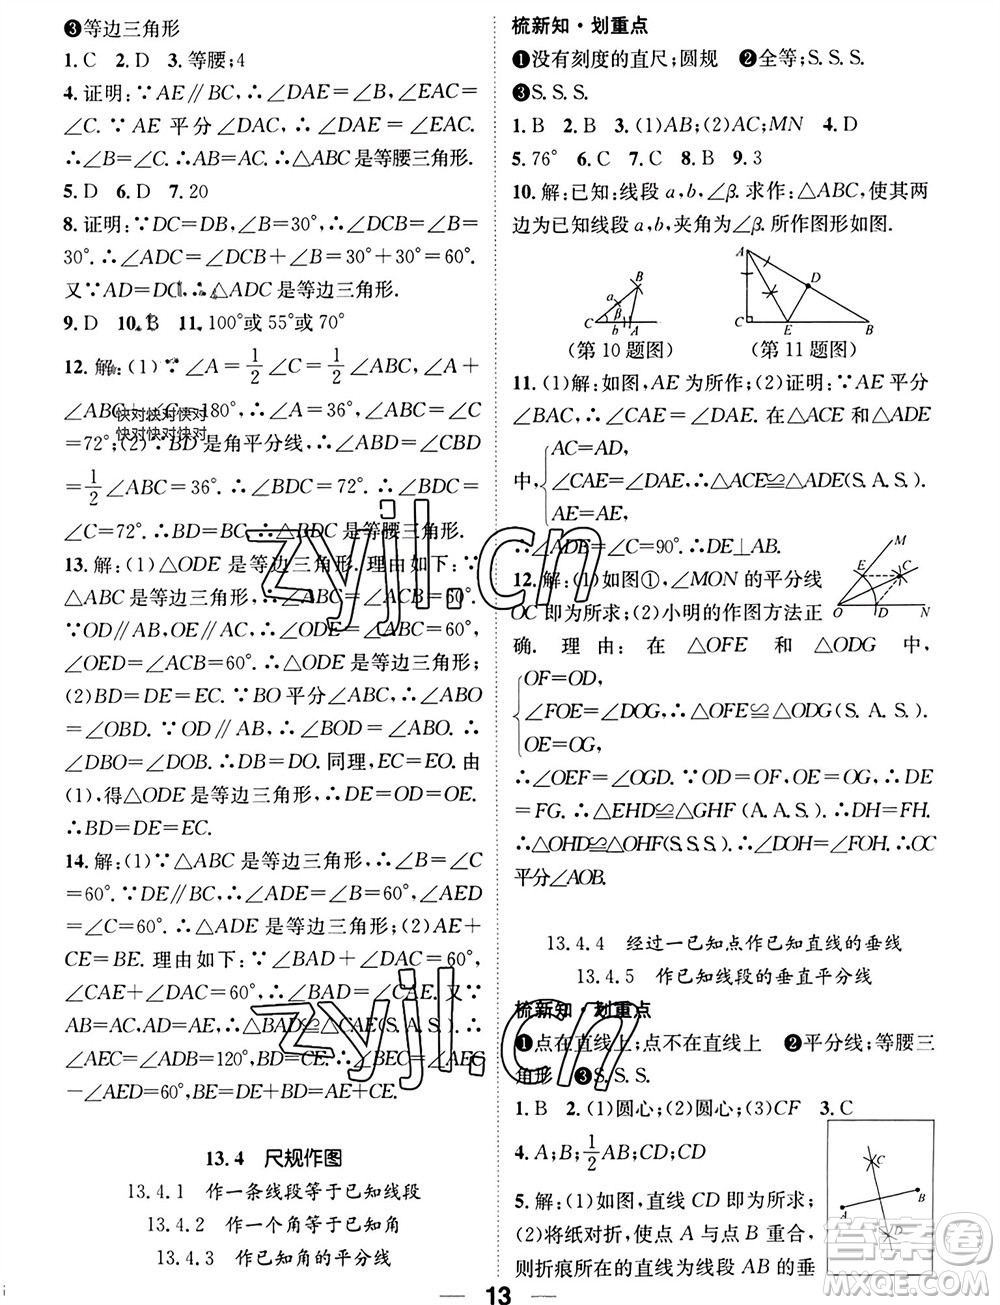 ❸等边三角形
1. C 2. D 3. 等腰;4
4. 证明:∵AE∥BC,∴∠DAE=∠B,∠EAC=
∠C.∵AE平分∠DAC,∴∠DAE=∠EAC.
∴∠B=∠C.∴△ABC是等腰三角形.
5. D 6. D 7. 20
8. 证明:∵DC=DB,∠B=30°,∴∠DCB=∠B=
30°.∴∠ADC=∠DCB+∠B=30°+30°=60°.
又∵AD=DC,∴△ADC是等边三角形.
9. D 10. B 11. 100°或55°或70°
12. 解:(1)∵∠A=1/2∠C=∠ABC,∠A+
∠ABC+∠C=180°,∴∠A=36°,∠ABC=∠C
=72°;(2)∵BD是角平分线,∴∠ABD=∠CBD
=1/2∠ABC=36°.∴∠BDC=72°.∴∠BDC=
∠C=72°.∴BD=BC.∴△BDC是等腰三角形.
快对快对快对
快对快对快对
13. 解:(1)△ODE是等边三角形.理由如下:∵
△ABC是等边三角形,∴∠ABC=∠ACB=60°.
∵OD∥AB,OE∥AC,∴∠ODE=∠ABC=60°,
∠OED=∠ACB=60°.∴△ODE是等边三角形;
(2)BD=DE=EC.∵BO平分∠ABC,∴∠ABO
=∠OBD.∵OD∥AB,∴∠BOD=∠ABO.∴
∠DBO=∠BOD.∴DB=DO.同理,EC=EO.由
(1),得△ODE是等边三角形,∴DE=OD=OE.
∴BD=DE=EC.
14. 解:(1)∵△ABC是等边三角形,∴∠B=∠C
=60°.∵DE∥BC,∴∠ADE=∠B=60°,∠AED
=∠C=60°.∴△ADE是等边三角形;(2)AE+
CE=BE.理由如下:∵∠BAD+∠DAC=60°,
∠CAE+∠DAC=60°,∴∠BAD=∠CAE.又∵
AB=AC,AD=AE,∴△BAD≌△CAE(S.A.S.).
∴∠AEC=∠ADB=120°,BD=CE.∴∠BEC=∠AEC
-∠AED=60°,∴BE=BD+DE=AE+CE.
13.4 尺规作图
13.4.1 作一条线段等于已知线段
13.4.2 作一个角等于已知角
13.4.3 作已知角的平分线
梳新知·划重点
❶没有刻度的直尺;圆规 ❷全等;S.S.S.
❸S.S.S.
1. B 2. B 3. (1)AB;(2)AC;MN 4. D
5. 76° 6. C 7. C 8. B 9. 3
10. 解:已知:线段a,b,∠β.求作:△ABC,使其两
边为已知线段a,b,夹角为∠β.所作图形如图.
B a β C b A
A D C E B
(第10题图) (第11题图)
11. (1)解:如图,AE为所作;(2)证明:∵AE平分
∠BAC,∴∠CAE=∠DAE.在△ACE和△ADE
AC=AD,
中,∠CAE=∠DAE,∴△ACE≌△ADE(S.A.S.).
AE=AE,
∴∠ADE=∠C=90°.∴DE⊥AB.
12. 解:(1)如图①,∠MON的平分线
OC即为所求;(2)小明的作图方法正
M E C O D N
确.理由:在△OFE和△ODG中,
OF=OD,
∠FOE=∠DOG,∴△OFE≌△ODG(S.A.S.).
OE=OG,
∴∠OEF=∠OGD.∵OD=OF,OE=OG,∴DE
=FG.∴△EHD≌△GHF(A.A.S.).∴DH=FH.
∴△OHD≌△OHF(S.S.S.).∴∠DOH=∠FOH.∴OC
平分∠AOB.
13.4.4 经过一已知点作已知直线的垂线
13.4.5 作已知线段的垂直平分线
梳新知·划重点
❶点在直线上;点不在直线上 ❷平分线;等腰三
角形 ❸S.S.S.
1. B 2. (1)圆心;(2)圆心;(3)CF 3. C
4. A;B;1/2AB;CD;CD
5. 解:(1)如图,直线CD即为所求;
(2)将纸对折,使点A与点B重合,
则折痕所在的直线为线段AB的垂
C A B D
13
zyjl.cn
zyjl.cn
答案圈
MXQE.COM